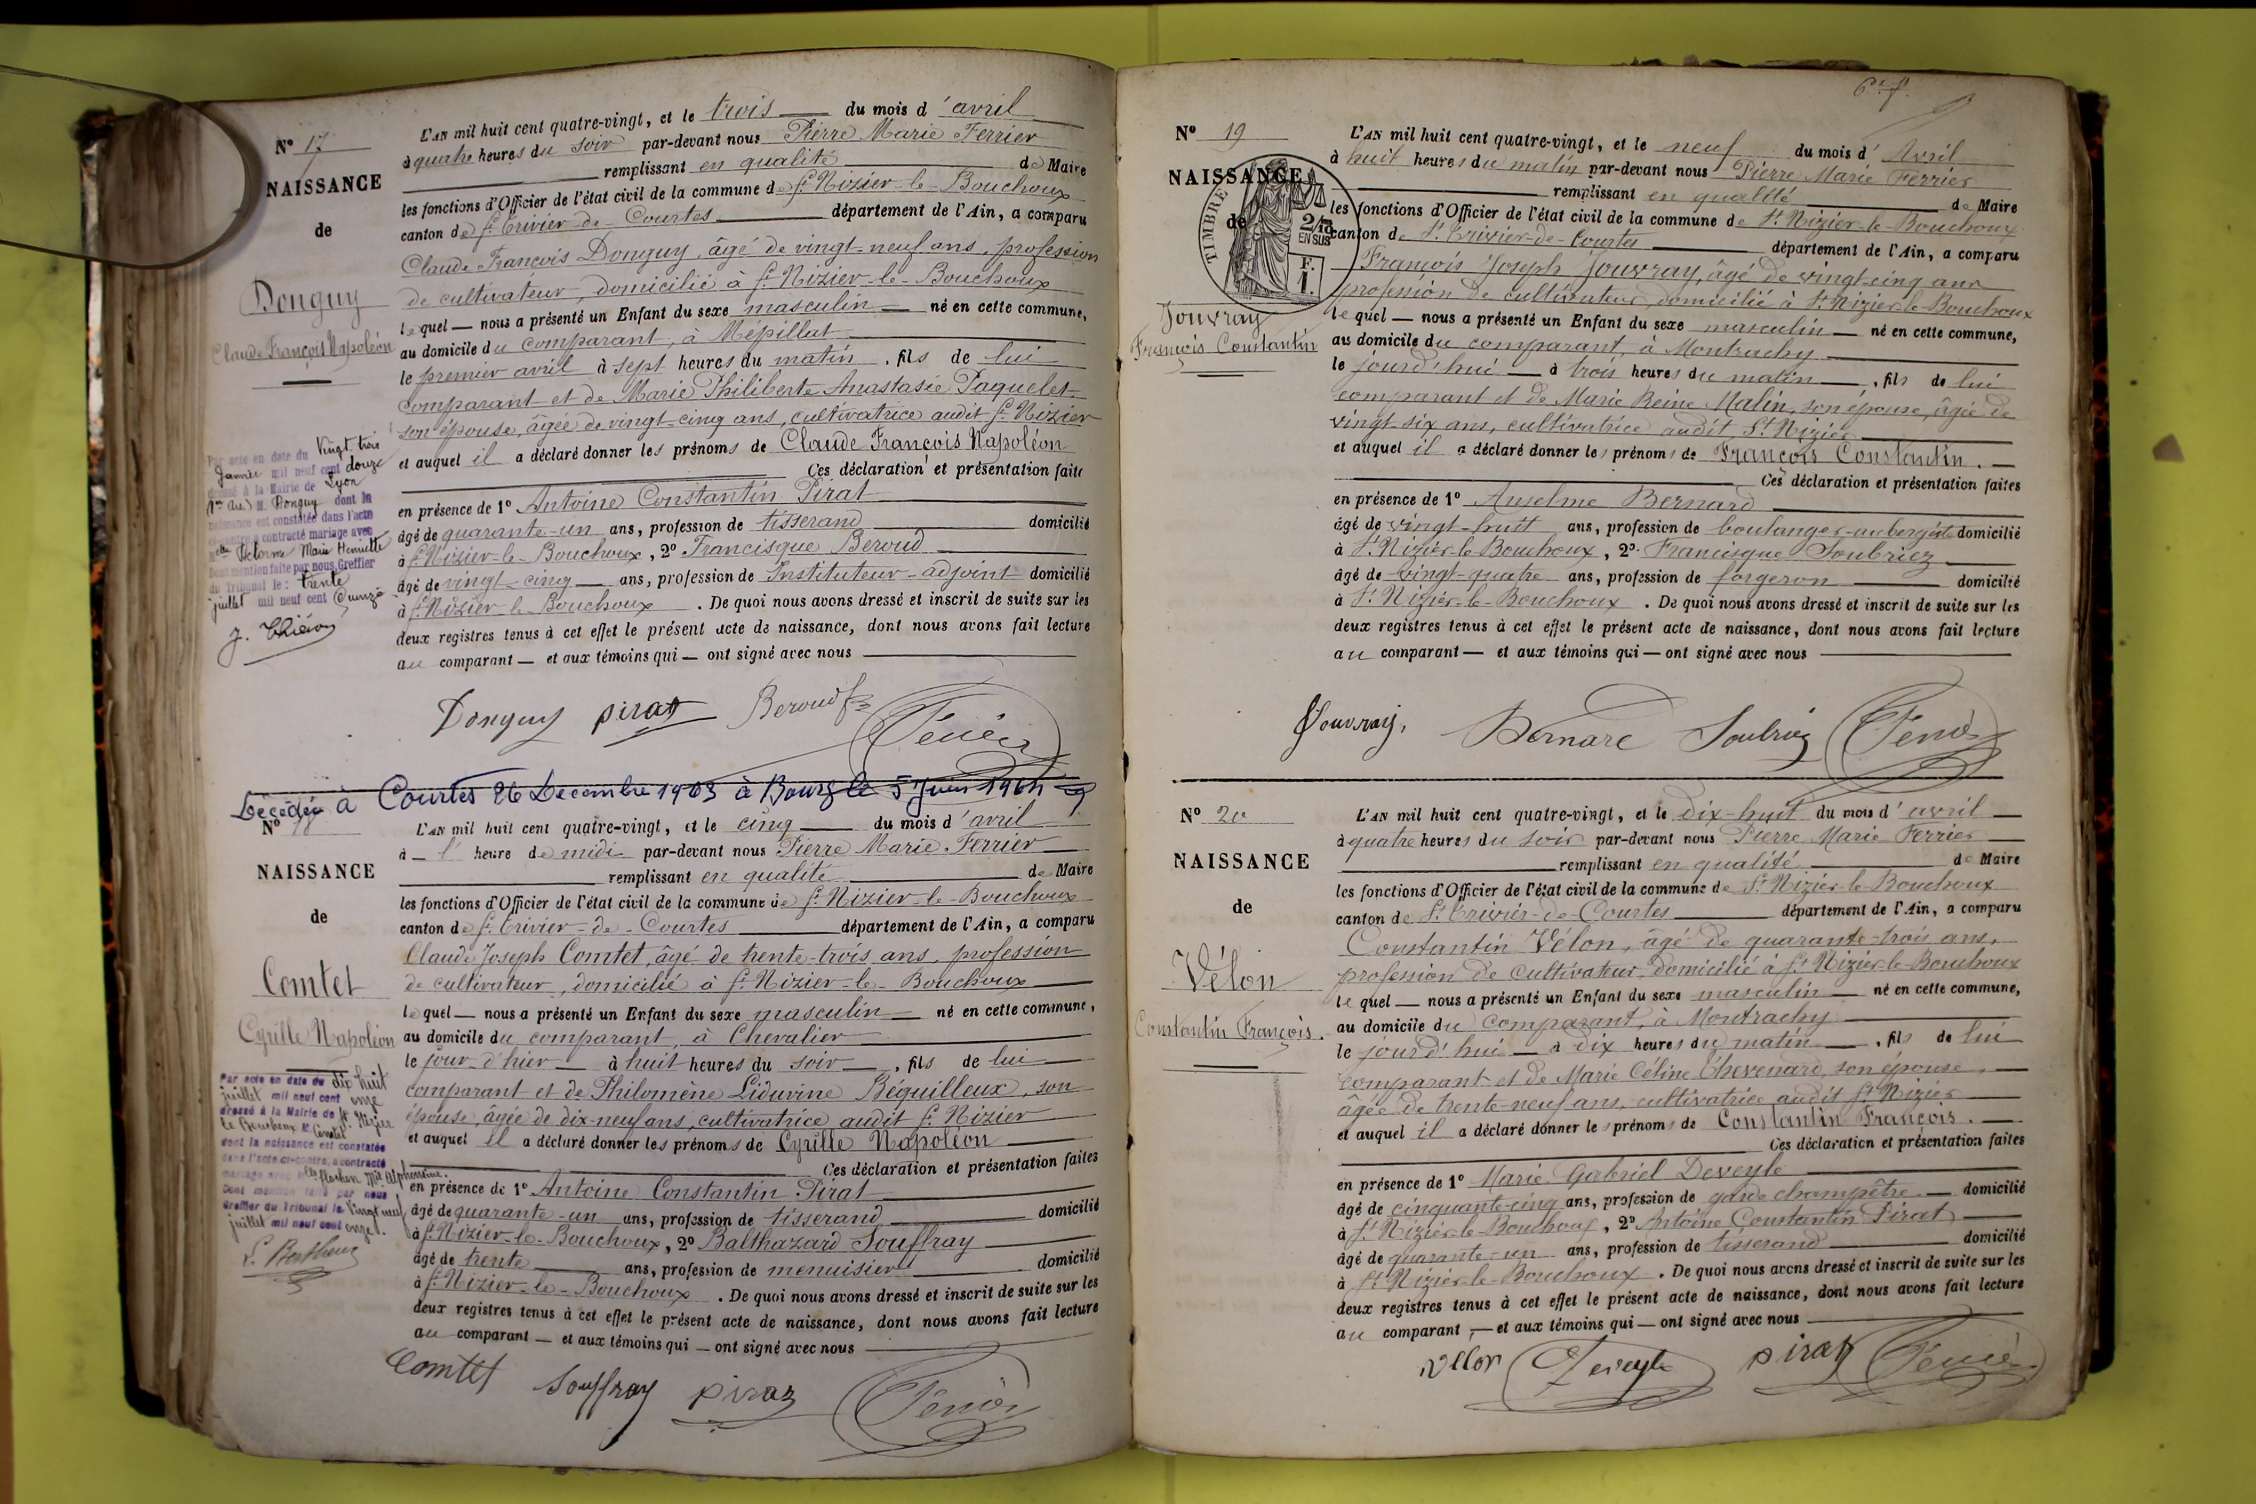 N° 17
NAISSANCE
de
Donguy
Claude François Napoléon
L'AN mil huit cent quatre-vingt, et le trois du mois d'avril
à quatre heures du soir par-devant nous Pierre Marie Ferrier
remplissant en qualité de Maire
les fonctions d'Officier de l'état civil de la commune de St Nizier-le-Bouchoux
canton de St Trivier-de-Courtes département de l'Ain, a comparu
Claude François Donguy, âgé de vingt-neuf ans, profession
de cultivateur, domicilié à St Nizier-le-Bouchoux
lequel — nous a présenté un Enfant du sexe masculin — né en cette commune,
au domicile du comparant, à Mépillat
le premier avril à sept heures du matin, fils de lui
comparant et de Marie Philiberte Anastasie Paquelet
son épouse, âgée de vingt-cinq ans, cultivatrice audit St Nizier
et auquel il a déclaré donner les prénoms de Claude François Napoléon
Ces déclaration et présentation faite
en présence de 1° Antoine Constantin Pirat
âgé de quarante-un ans, profession de tisserand domicilié
à St Nizier-le-Bouchoux, 2° Francisque Beroud
âgé de vingt-cinq ans, profession de Instituteur-adjoint domicilié
à St Nizier-le-Bouchoux. De quoi nous avons dressé et inscrit de suite sur les
deux registres tenus à cet effet le présent acte de naissance, dont nous avons fait lecture
au comparant — et aux témoins qui — ont signé avec nous
Par acte en date du Vingt trois
Janvier mil neuf cent douze
dressé à la Mairie de Lyon
M. Donguy dont la
naissance est constatée dans l'acte
ci-contre a contracté mariage avec
Delorme Marie Henriette
Dont mention faite par nous, Greffier
du Tribunal le: trente
juillet mil neuf cent Quinze
Donguy Pirat Beroud
Décédée à Courtes 26 Decembre 1903 à Bourg le 5 Juin 1964
N° 18
NAISSANCE
de
Comtet
Cyrille Napoléon
L'AN mil huit cent quatre-vingt, et le cinq du mois d'avril
à l'heure de midi par-devant nous Pierre Marie Ferrier
remplissant en qualité de Maire
les fonctions d'Officier de l'état civil de la commune de St Nizier-le-Bouchoux
canton de St Trivier-de-Courtes département de l'Ain, a comparu
Claude Joseph Comtet, âgé de trente-trois ans, profession
de cultivateur, domicilié à St Nizier-le-Bouchoux
lequel — nous a présenté un Enfant du sexe masculin — né en cette commune,
au domicile du comparant, à Chevalier
le jour d'hier à huit heures du soir, fils de lui
comparant et de Philomène Liduvine Béguilleux, son
épouse, âgée de dix-neuf ans, cultivatrice audit St Nizier
et auquel il a déclaré donner les prénoms de Cyrille Napoléon
Ces déclaration et présentation faites
en présence de 1° Antoine Constantin Pirat
âgé de quarante-un ans, profession de tisserand domicilié
à St Nizier-le-Bouchoux, 2° Balthazard Souffray
âgé de trente ans, profession de menuisier domicilié
à St Nizier-le-Bouchoux. De quoi nous avons dressé et inscrit de suite sur les
deux registres tenus à cet effet le présent acte de naissance, dont nous avons fait lecture
au comparant — et aux témoins qui — ont signé avec nous
Par acte en date du dix huit
juillet mil neuf cent onze
dressé à la Mairie de St Nizier
le Bouchoux M. Comtet
dont la naissance est constatée
dans l'acte ci-contre, a contracté
mariage avec
Dont mention faite par nous
Greffier du Tribunal le Vingt neuf
juillet mil neuf cent onze.
Comtet Souffray Pirat
N° 19
NAISSANCE
de
TIMBRE
2/10
EN SUS
F.
1.
Jouvray
François Constantin
L'AN mil huit cent quatre-vingt, et le neuf du mois d'Avril
à huit heures du matin par-devant nous Pierre Marie Ferrier
remplissant en qualité de Maire
les fonctions d'Officier de l'état civil de la commune de St Nizier-le-Bouchoux
canton de St Trivier-de-Courtes département de l'Ain, a comparu
François Joseph Jouvray, âgé de vingt-cinq ans
profession de cultivateur, domicilié à St Nizier-le-Bouchoux
lequel — nous a présenté un Enfant du sexe masculin — né en cette commune,
au domicile du comparant, à Montrachy
le jourd'hui à trois heures du matin, fils de lui
comparant et de Marie Reine Malin, son épouse, âgée de
vingt-six ans, cultivatrice audit St Nizier
et auquel il a déclaré donner les prénoms de François Constantin.
Ces déclaration et présentation faites
en présence de 1° Anselme Bernard
âgé de vingt-huit ans, profession de boulanger-aubergiste domicilié
à St Nizier-le-Bouchoux, 2° Francisque Soubriez
âgé de vingt-quatre ans, profession de forgeron domicilié
à St Nizier-le-Bouchoux. De quoi nous avons dressé et inscrit de suite sur les
deux registres tenus à cet effet le présent acte de naissance, dont nous avons fait lecture
au comparant — et aux témoins qui — ont signé avec nous
Jouvray, Bernard Soubriez
N° 20
NAISSANCE
de
Vélon
Constantin François.
L'AN mil huit cent quatre-vingt, et le dix-huit du mois d'avril
à quatre heures du soir par-devant nous Pierre Marie Ferrier
remplissant en qualité de Maire
les fonctions d'Officier de l'état civil de la commune de St Nizier-le-Bouchoux
canton de St Trivier-de-Courtes département de l'Ain, a comparu
Constantin Vélon, âgé de quarante-trois ans,
profession de cultivateur, domicilié à St Nizier-le-Bouchoux
lequel — nous a présenté un Enfant du sexe masculin — né en cette commune,
au domicile du comparant, à Montrachy
le jourd'hui à dix heures du matin, fils de lui
comparant et de Marie Céline Thévenard, son épouse,
âgée de trente-neuf ans, cultivatrice audit St Nizier
et auquel il a déclaré donner les prénoms de Constantin François.
Ces déclaration et présentation faites
en présence de 1° Marie Gabriel Deveyle
âgé de cinquante-cinq ans, profession de garde champêtre domicilié
à St Nizier-le-Bouchoux, 2° Antoine Constantin Pirat
âgé de quarante-un ans, profession de tisserand domicilié
à St Nizier-le-Bouchoux. De quoi nous avons dressé et inscrit de suite sur les
deux registres tenus à cet effet le présent acte de naissance, dont nous avons fait lecture
au comparant, — et aux témoins qui — ont signé avec nous
Vélon Deveyle Pirat